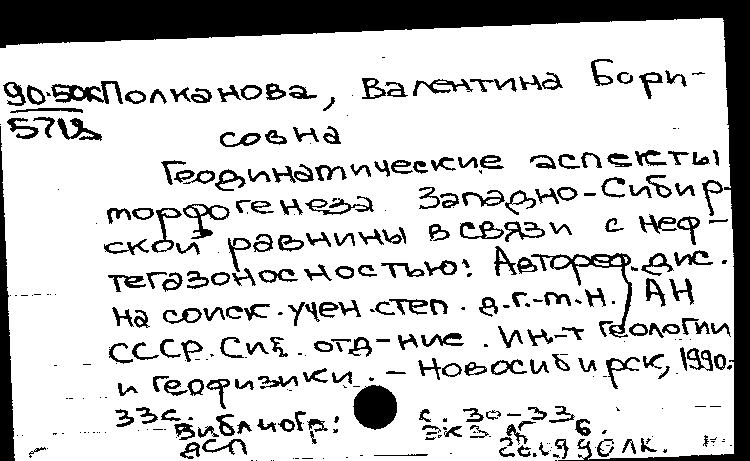 90-50к Полканова, Валентина Бори-
571
совна
Геодинамические аспекты
морфогенеза Западно-Сибир-
ской равнины в связи с неф-
тегазоносностью: Автореф. дис.
на соиск. учен. степ. д.г.-м.н. / АН
СССР. Сиб. отд-ние. Ин-т геологии
и геофизики. - Новосибирск, 1990.-
33с.
Библиогр: с. 30-33
ЭКЗ 6.